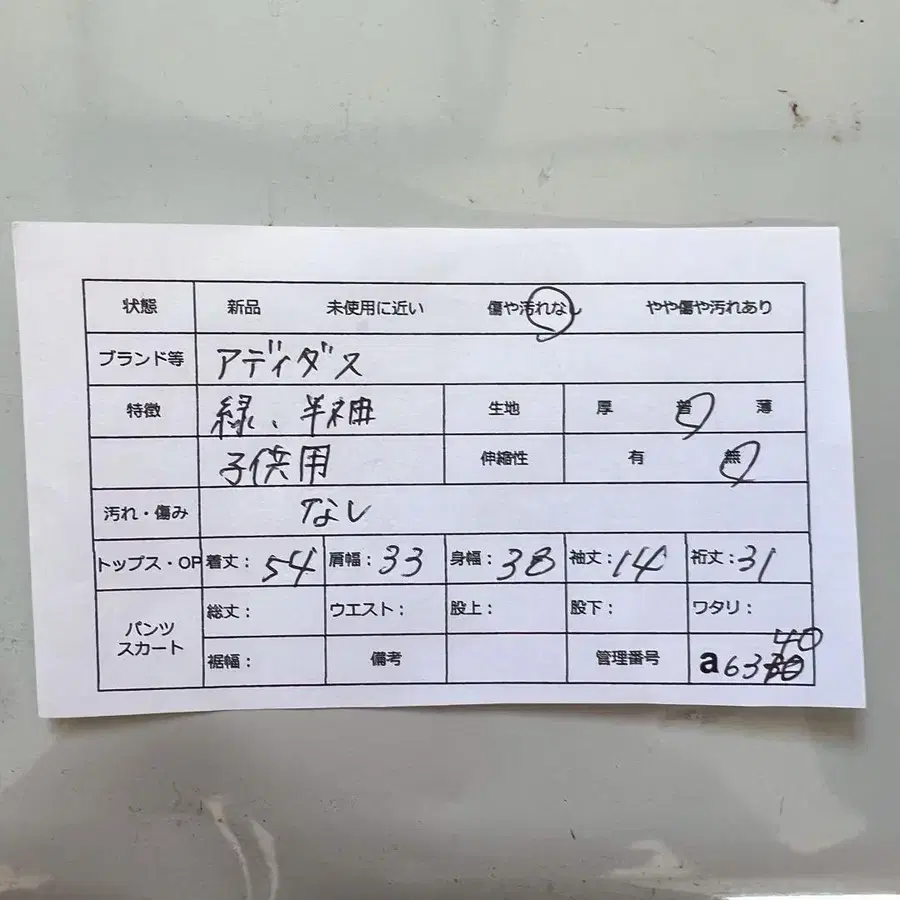 状態 新品 未使用に近い 傷や汚れなし やや傷や汚れあり
ブランド等 アディダス
特徴 緑、半袖 生地 厚 普 薄
子供用 伸縮性 有 無
汚れ・傷み なし
トップス・OP 着丈: 54 肩幅: 33 身幅: 38 袖丈: 14 裄丈: 31
パンツ スカート 総丈: ウエスト: 股上: 股下: ワタリ:
裾幅: 備考 管理番号 a63 40